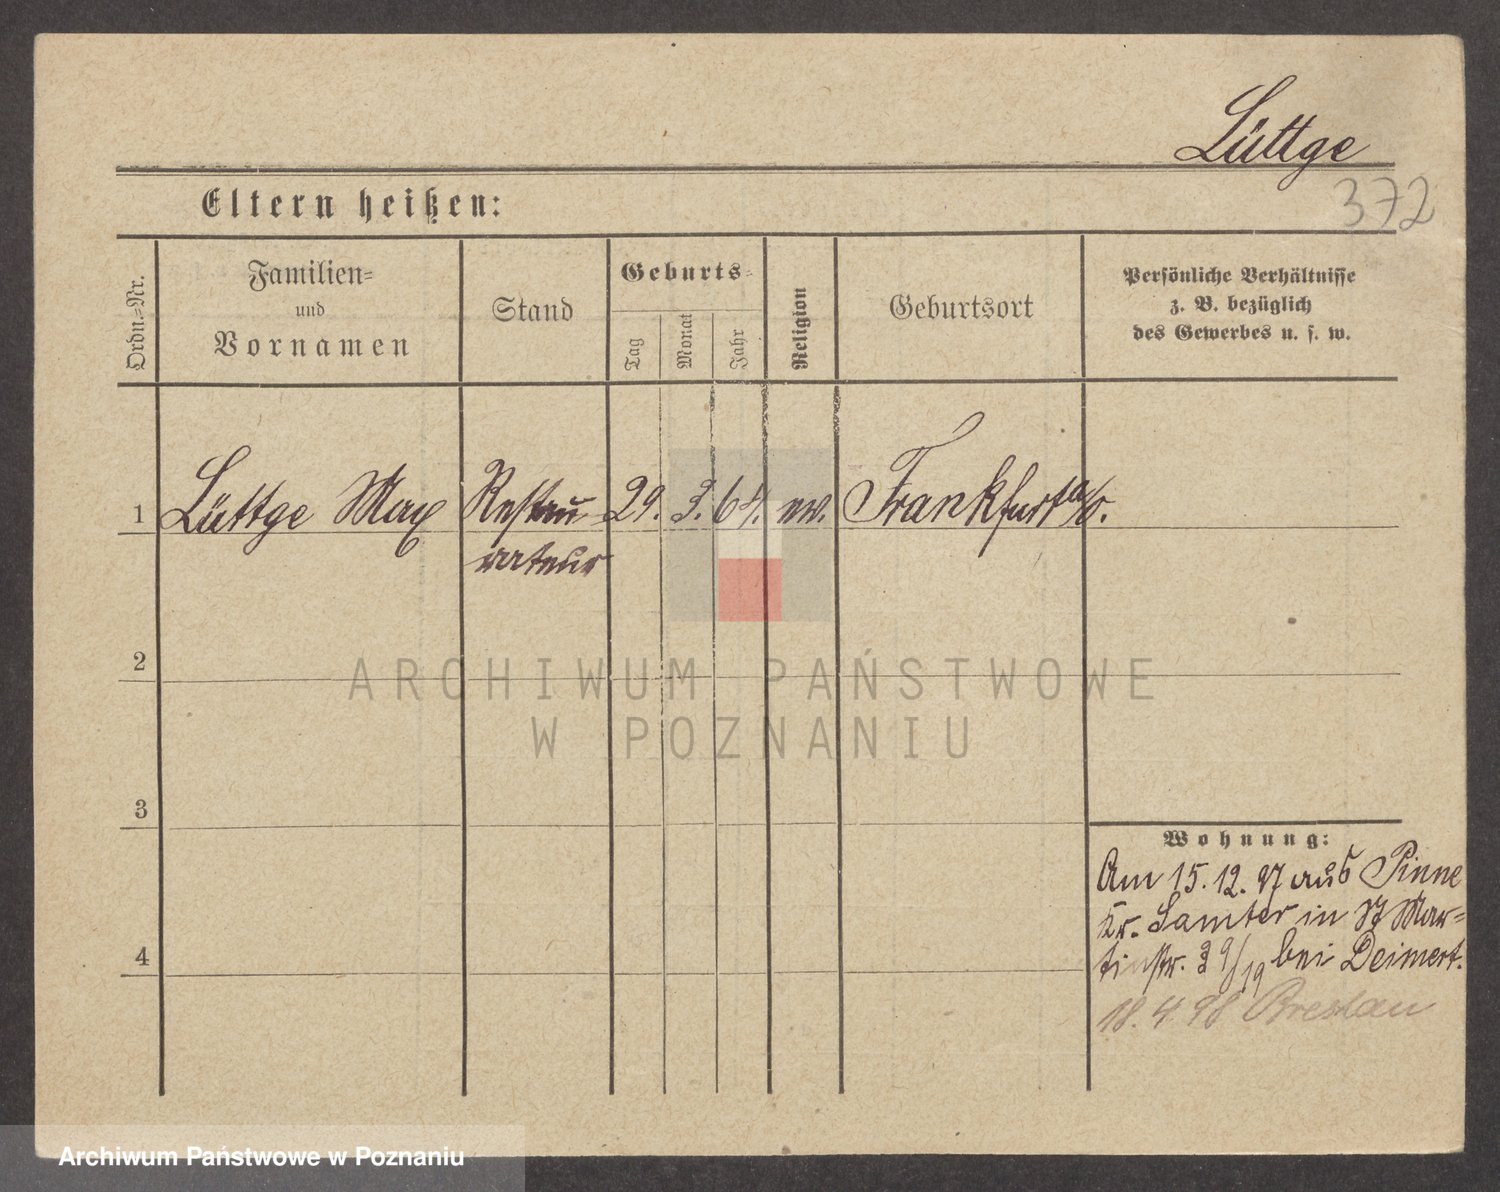 Lüttge
372
Eltern heißen:
Ordn.=Nr.
Familien=
und
Vornamen
Stand
Geburts=
Tag
Monat
Jahr
Religion
Geburtsort
Persönliche Verhältnisse
z. B. bezüglich
des Gewerbes u. s. w.
1 Lüttge Max Restau 29. 3. 64. ev. Frankfurt a/O.
rateur
2
ARCHIWUM PAŃSTWOWE
W POZNANIU
3
Wohnung:
Am 15. 12. 97 aus Pinne
Kr. Samter in St Mar=
tinstr. 9/19 bei Deimert.
18. 4. 98 Breslau
4
Archiwum Państwowe w Poznaniu